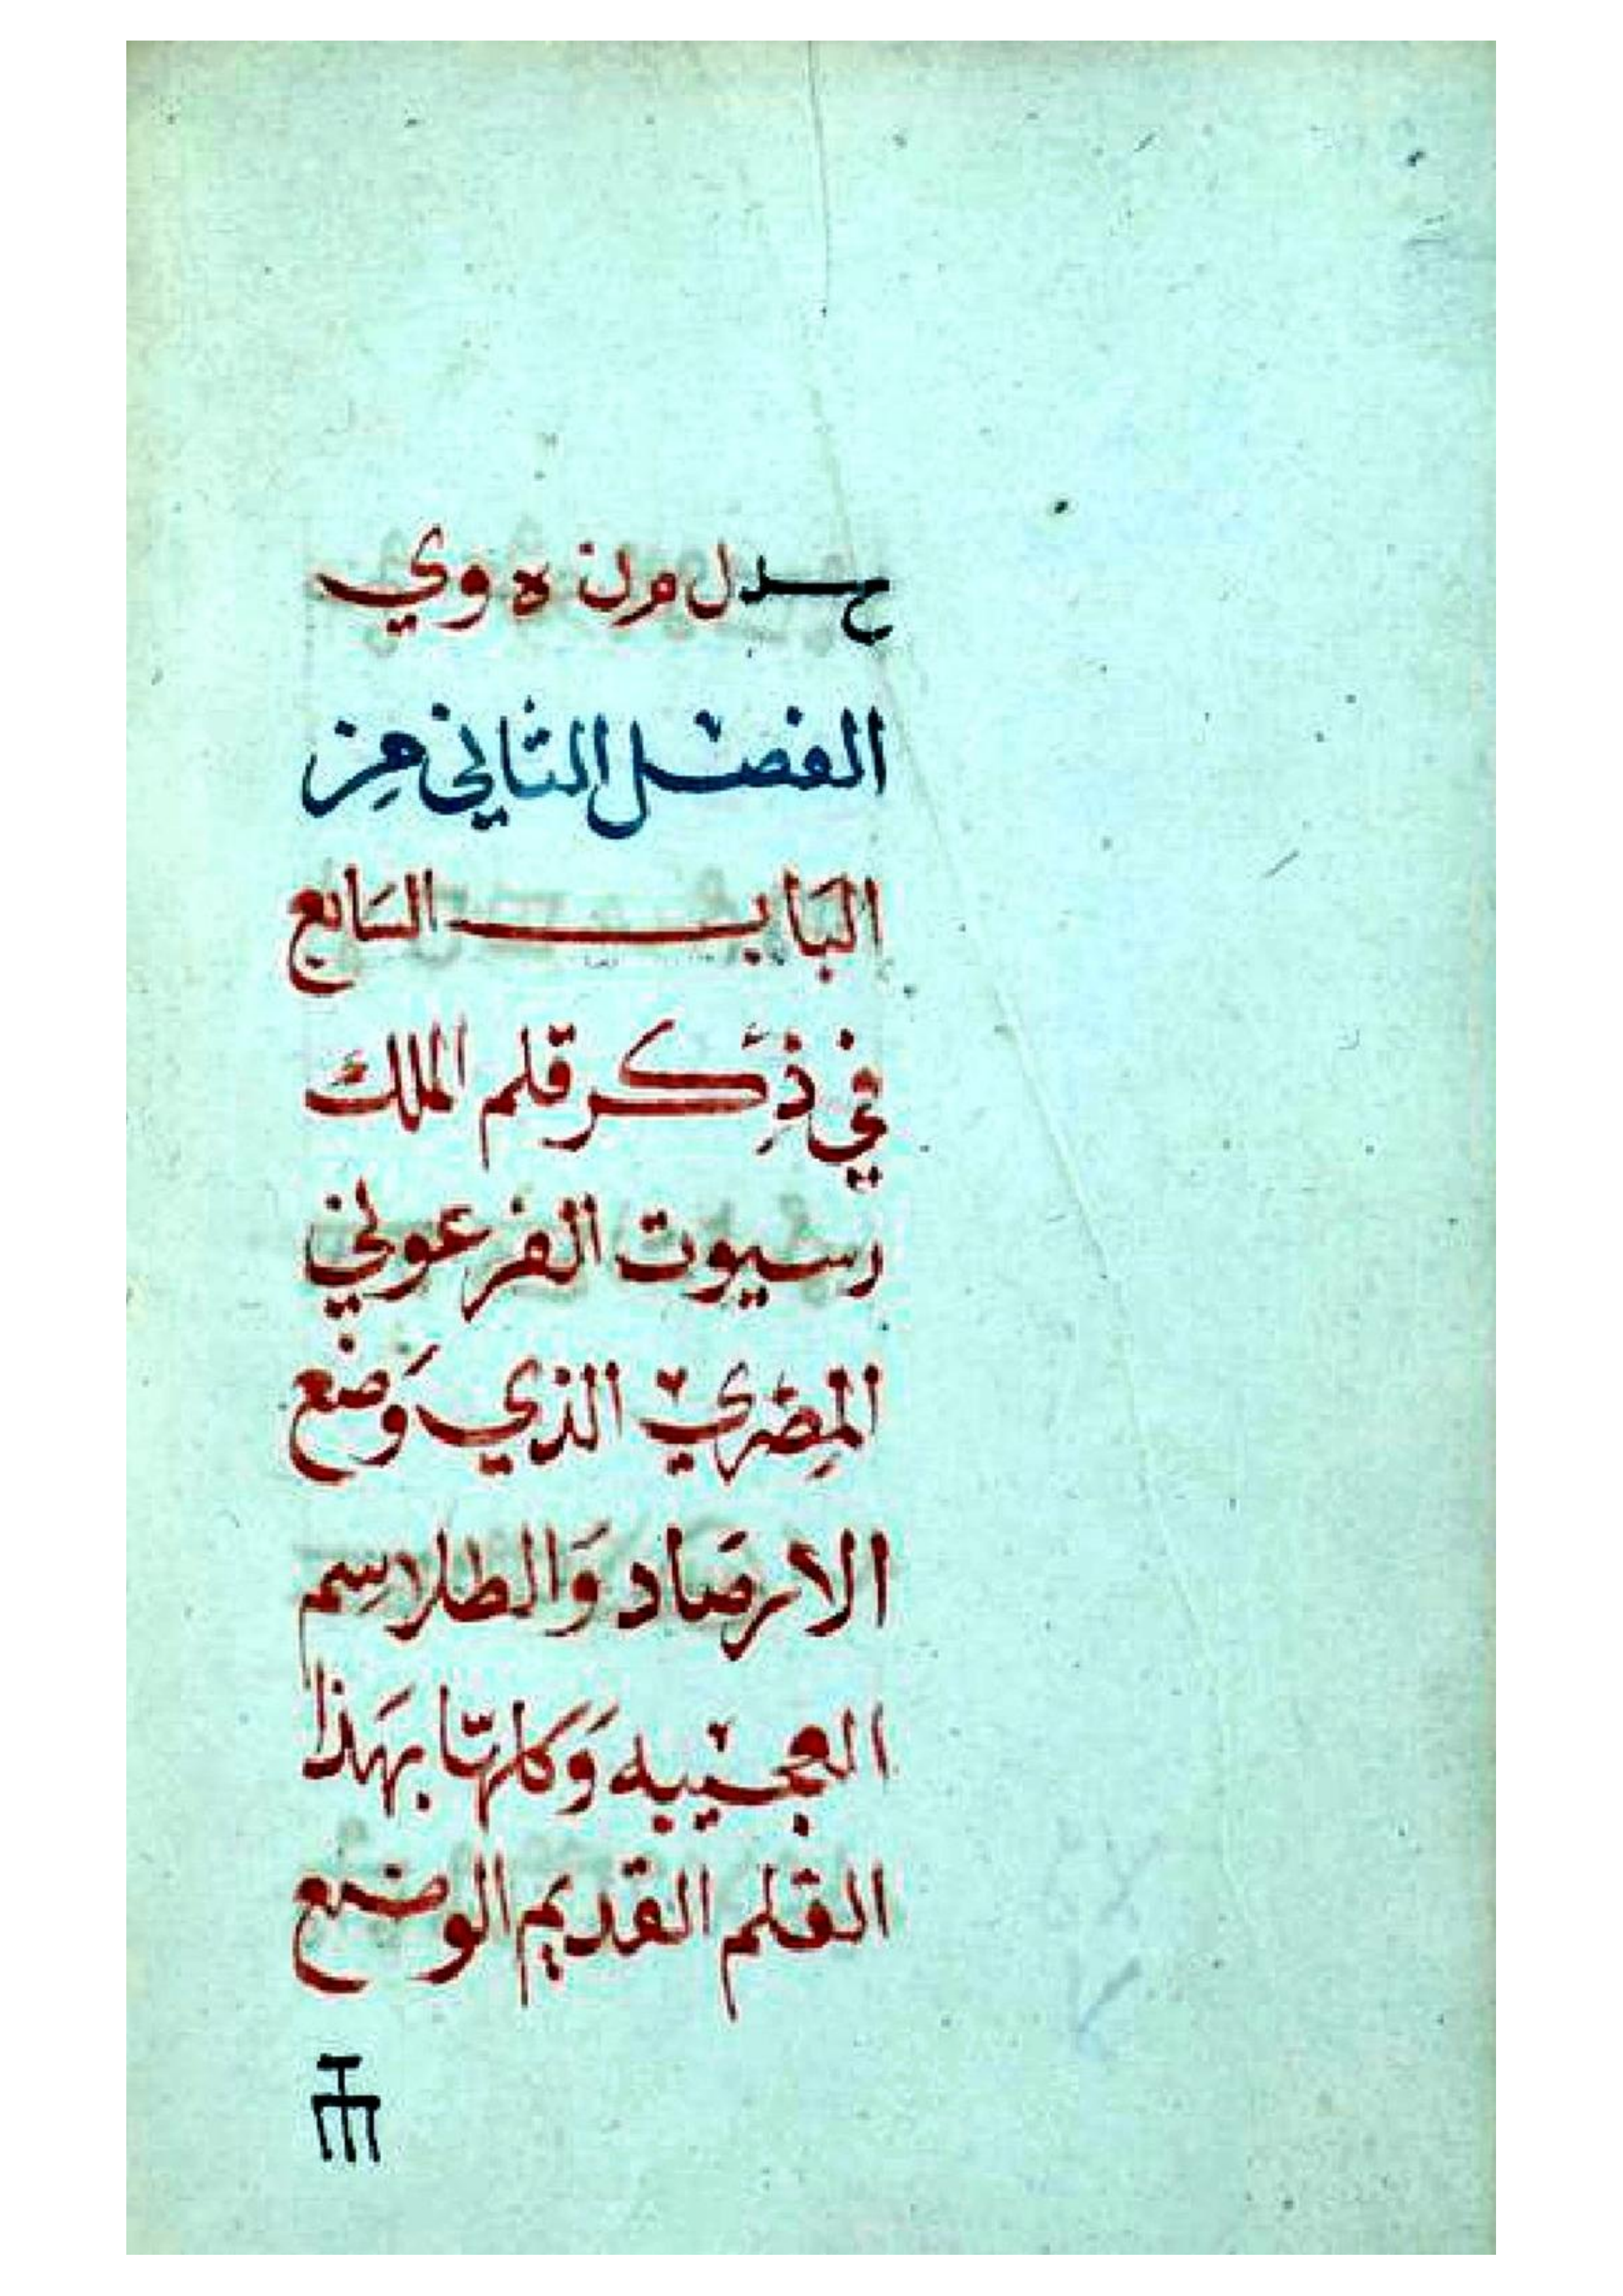 ل م ن ه و ي
الفصل الثاني من
البَاب السَابع
في ذِكر قلم الملك
رسيوت الفرعوني
المِصْري الذي وَضع
الارصَاد وَالطلاسِم
العجيبه وَكلهَا بهَذا
القلم القديم الوضع